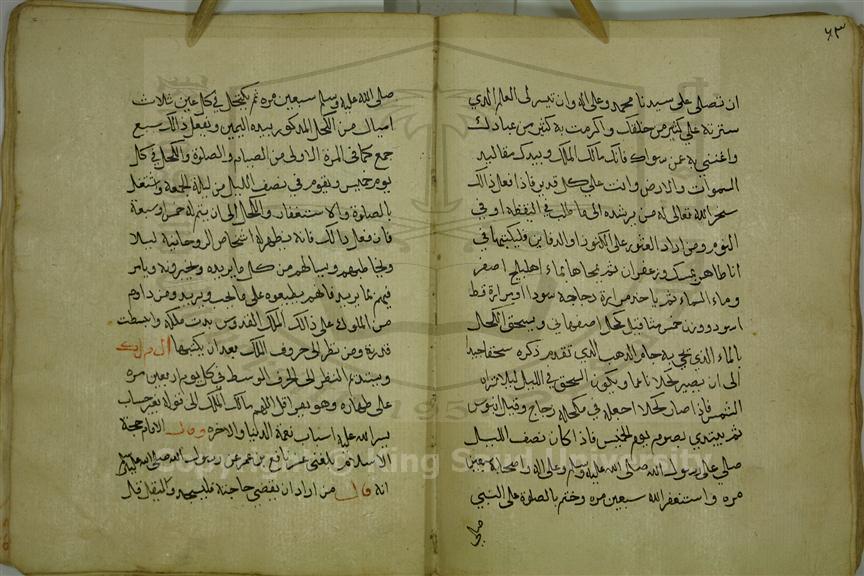 ٦٣
ان تصلى على سيدنا محمد وعلى اله وان تيسر لى العلم الذي
سترته على كثير من خلقك واكرمت به كثير من عبادك
واغننى به عن سواك فانك مالك الملك وبيدك مقاليد
السموات والارض وانت على كل شى قدير فاذا فعل ذالك
سخر الله تعالى له من يرشده الى ما طلب فى اليقظة او فى
النوم ومن اراد العثور على الكنوز او الدفاين فليكتبها فى
انا طاهر بمسك وزعفران ثم يمحاها بماء اهليلج اصفر
وماء السماء ثم ياخذ مرارة دجاجه سودا او مرارة قط
اسود ووزن خمس مثاقيل كحل اصفهانى ويسحق الكحال
بالماء الذي محى به جام الذهب الذي تقدم ذكره سحقا جيدا
الى ان يصير كحلا ناعما ويكون السحق فى الليل ليلا تراه
الشمس فاذا صار كحلا اجعله فى مكحله زجاج وقيل ابنوس
ثم يبتدى بصوم يوم الخميس فاذا كان نصف الليل
صلي على رسول الله صلى الله عليه وسلم وعلى اله واصحابه سبعين
مره واستغفر الله سبعين مره وختم بالصلوة على النبي
صلى
صلى الله عليه وسلم سبعين مره ثم يكتحل فى كل عين ثلاث
اميال من الكحل المذكور بيده اليمين ويفعل ذالك سبع
جمع كما فى المرة الاولى من الصيام والصلوة والكحل فى كل
يوم خميس ويقوم فى نصف الليل من ليلة الجمعة ويشتغل
بالصلوة والاستغفار والكحل الى ان يتم له خمس او سبعة
فان فعل ذالك فانه يظهر له اشخاص الروحانية ليلا
ويخاطبهم ويسالهم من كل ما يريده ويخبرونه ويامر
فيهم بما يريد فانهم يطيعوه على ما احب ويريد ومن داوم
من الملوك على ذالك الملك القدوس بدت ملكه وانبسطت
قدرته ومن نظر الى حروف الملك بعد ان يكتبها ال م ل ك
ويبتدى النظر الى الحرف الوسط فى كل يوم اربعين مره
على طهاره وهو يقرا قل اللهم مالك الملك الى قوله بغير حساب
يسر الله عليه اسباب نعمة الدنيا والاخره وقال الامام حجة
الاسلام بلغنى عن نافع بن عمر عن رسول الله صلى الله عليه وسلم
انه قال من اراد ان يقضي حاجته فليسجد وليقل قال
Copyright © King Saud University
195